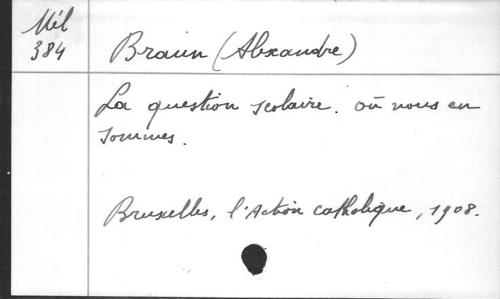 Mél
384
Braun (Alexandre)
La question scolaire. où nous en
sommes.
Bruxelles, l'Action catholique, 1908.